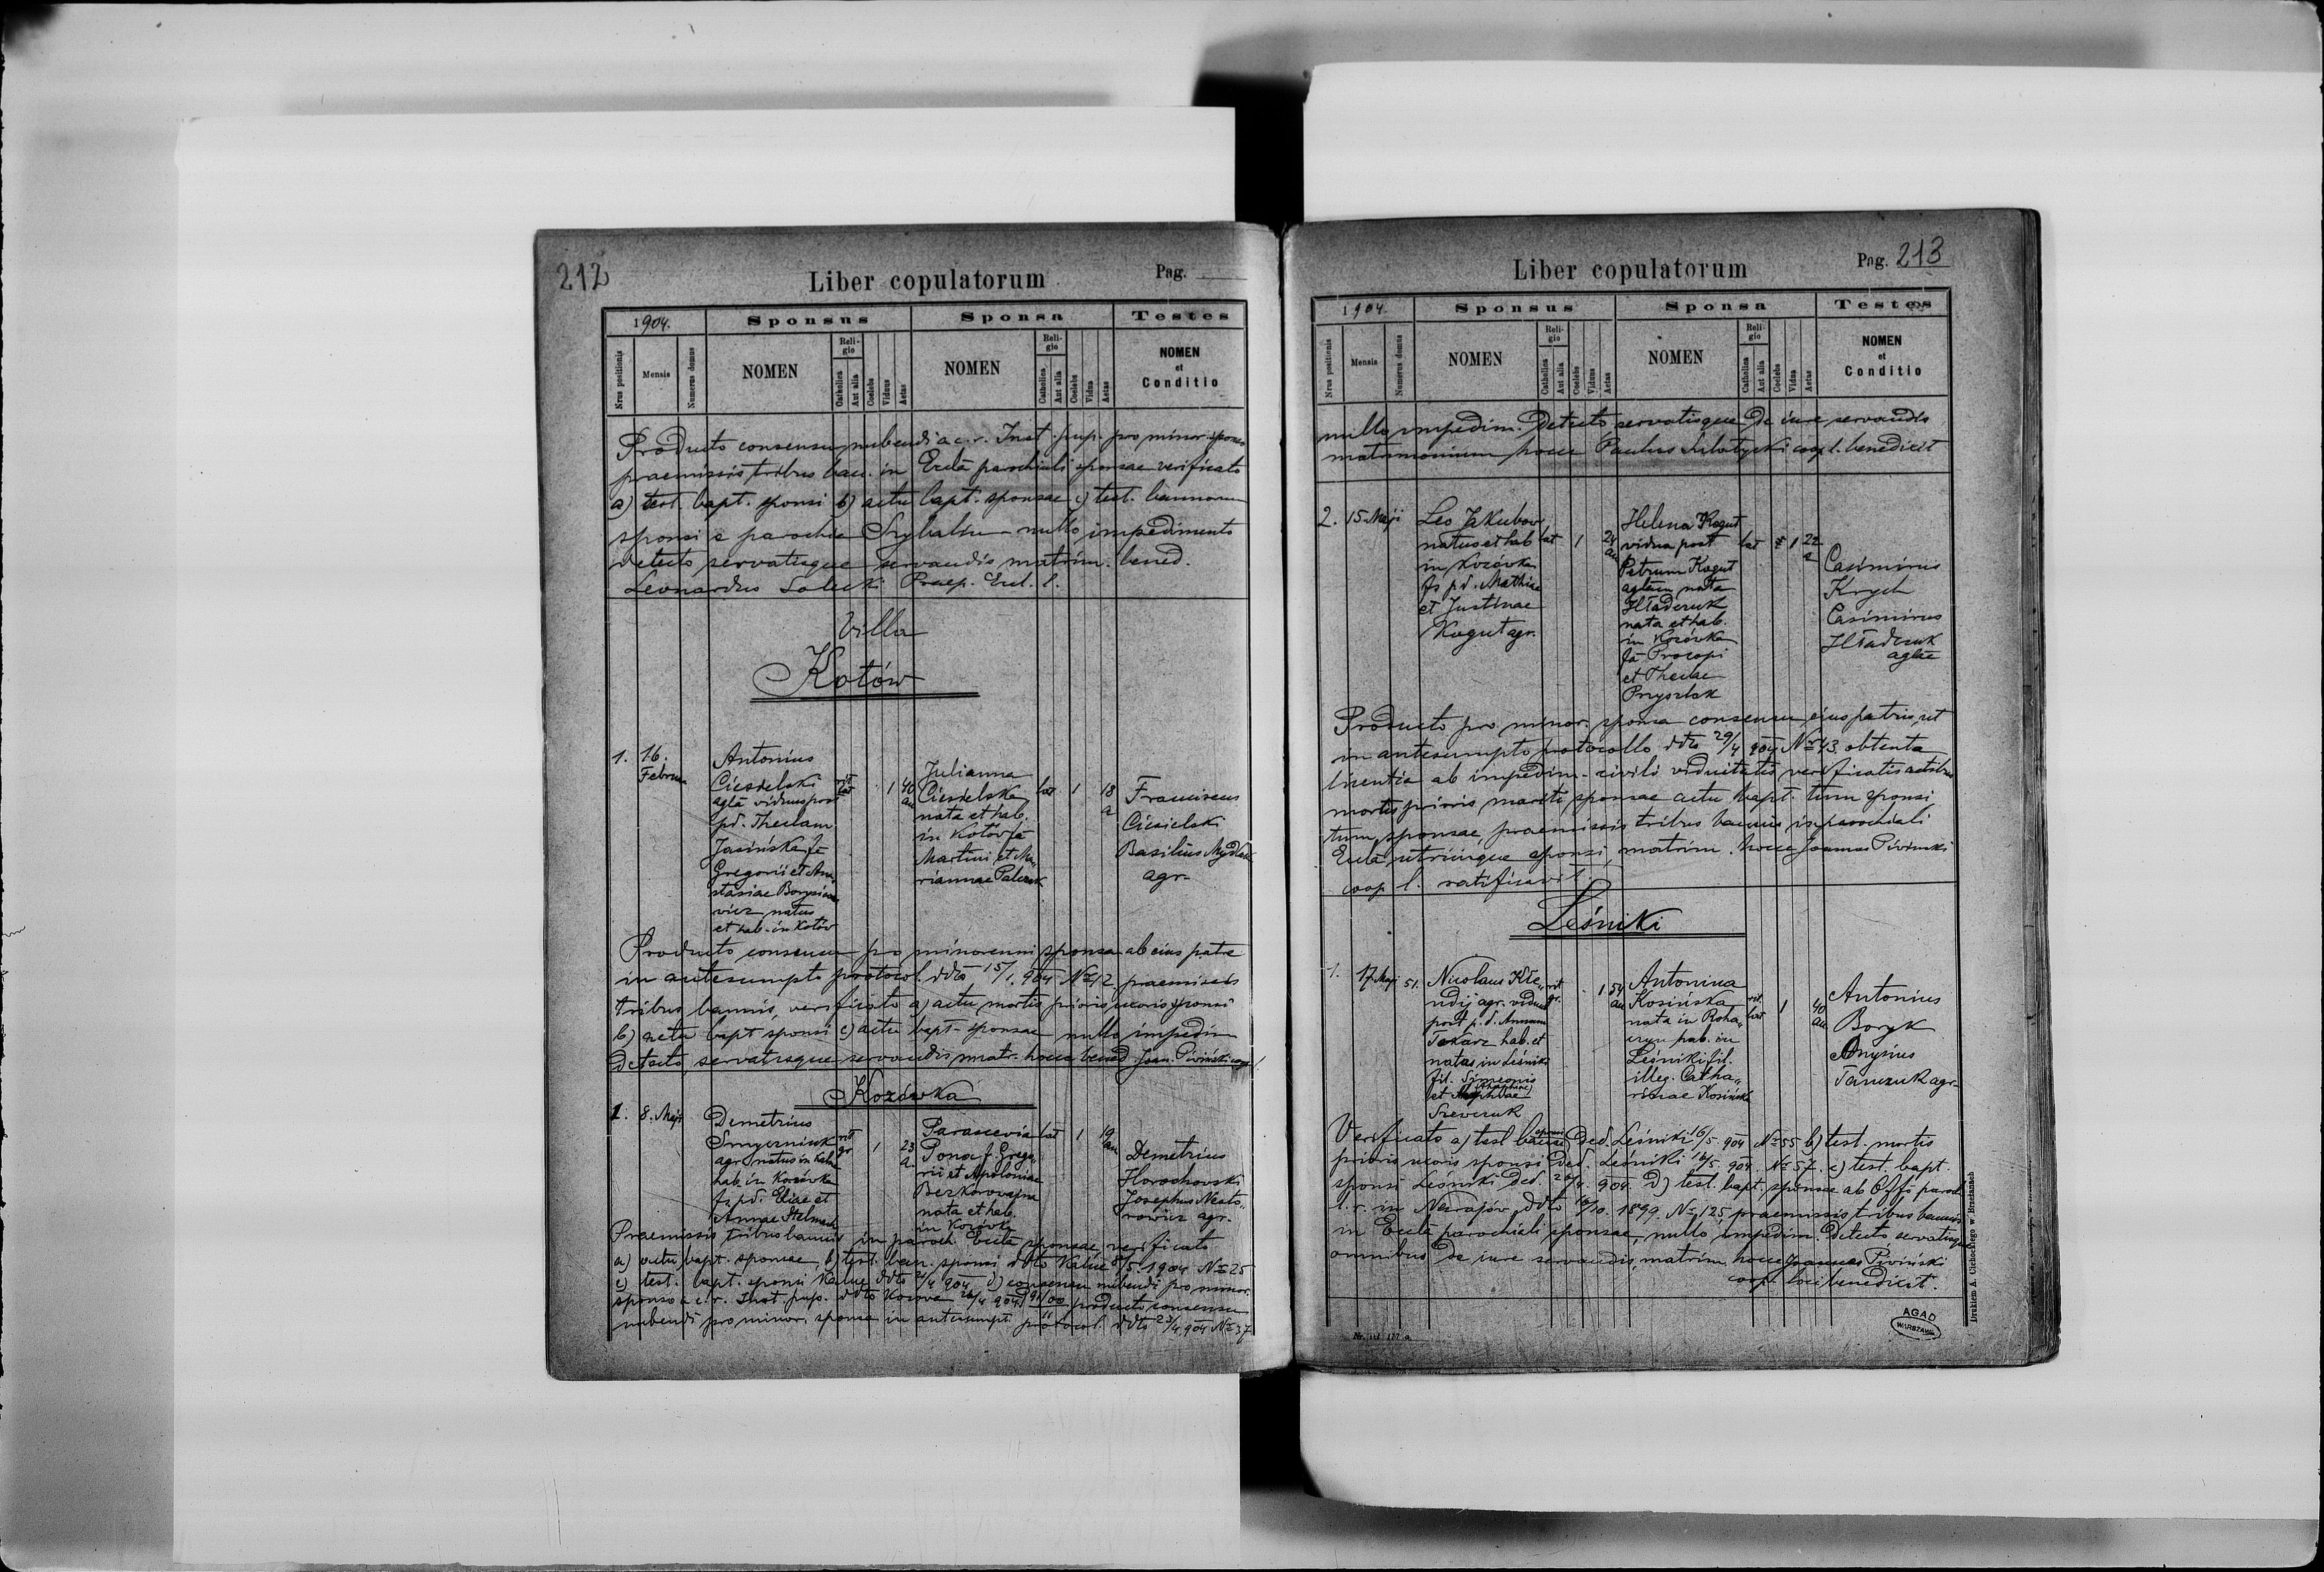 212
Liber copulatorum
Pag.
1904.
Sponsus
Sponsa
Testes
Nrus positionis
Mensis
Numerus domus
NOMEN
Religio
Catholica
Aut alia
Coelebs
Viduus
Aetas
NOMEN
Religio
Catholica
Aut alia
Coelebs
Vidua
Aetas
NOMEN
et
Conditio
Producto consensu nubendi a c.r. Inst. pup. pro minor. sponso
praemissis tribus ban. in Eccla parochiali sponsae verificato
a) test. bapt. sponsi b) actu bapt. sponsae c) test. bannorum
sponsi e parochia nullo impedimento
detecto servatisque servandis matrim. bened.
Leonardus Solecki Praep. Eccl. l.
Villa
Kotów
1. 16.
Februa
Antonius
Ciesielski
agla viduus post
pd. Theclam
Jasińska fs
Gregorii et Ana
stasiae
natus
et hab. in Kotów
rit
lat
1
40
an
Julianna
Ciesielska
nata et hab.
in Kotów fa
Martini et Ma„
riannae
lat
1
18
a
Franciscus
Ciesielski
Basilius
agr.
Producto consensu pro minorenni sponsa ab eius patre
in antesumpto protocol. ddto 15/1. 904 No 42 praemissis
tribus bannis, verificato a) actu mortis prioris uxoris sponsi
b) actu bapt sponsi c) actu bapt. sponsae nullo impedim
detecto servatisque servandis matr. hocce bened. Joan. Piwiński coop l.
Kozówka
1. 8. Maji
Demetrius
agr. natus in Kalne
hab. in Kozówka
fs pd. Eliae et
Annae Stelmach
rit
gr
1
23
a
Parascevia
Pona f. Grego„
rii et Apoloniae
nata et hab.
in Kozówka
lat
1
19
an
Demetrius
Horochowski
Josephus Nesto„
rowicz agr.
Praemissis tribus bannis in paroch. Eccla sponsae, verificato
a) actu bapt. sponsae, b) test. ban. sponsi ddto Kalne 8/5. 1904 No 25
c) test. bapt. sponsi Kalne ddto 904 d) consensu nubendi pro minor.
sponso a c.r. Inst. pup. ddto Kozowa 904 producto consensu
nubendi pro minor. sponsa in antesumpt. protocol. ddto 23/4 904 No 37
Pag. 213
Liber copulatorum
1904.
Sponsus
Sponsa
Testes
Nrus positionis
Mensis
Numerus domus
NOMEN
Religio
Catholica
Aut alia
Coelebs
Viduus
Aetas
NOMEN
Religio
Catholica
Aut alia
Coelebs
Vidua
Aetas
NOMEN
et
Conditio
nullo impedim. detecto servatisque de iure servandis
matrimonium hocce Paulus coop l. benedixit
2. 15. Maji
Leo Jakubow
natus et hab
in Kozówka
fs pd. Mathiae
et Justinae
Kogut agr.
lat
1
24
an
Helena Kogut
vidua post
Petrum Kogut
aglam nata
Hładczuk
nata et hab.
in Kozówka
fa Procopi
et Theclae
Przyszlak
lat
1
22
a
Casimirus
Krych
Casimirus
Hładczuk
aglae
Producto pro minor. sponsa consensu eius patris, ut
in antesumpto protocollo ddto 29/4 904 No 43. obtenta
licentia ab impedim. civili viduitatis verificatis actibus
mortis prioris mariti sponsae actu bapt. tum sponsi
tum sponsae, praemissis tribus bannis in parochiali
Eccla utriusque sponsi, matrim. hocce Joannes Piwiński
coop l. ratificavit.
Leśniki
1. 17. Maji 51.
Nicolaus Kłe„
ndij agr. viduus
post p.d. Annam
Tokarz hab. et
natus in Leśniki
fil. Simeonis
et
Szewczuk
rit
gr.
1
54
an
Antonina
Kosińska
nata in Roha„
tyn hab. in
Leśniki fil.
illeg. Catha„
rinae Kosińska
rit.
lat
1
40
an
Antonius
Boryk
Onysius
Tanczuk agr.
Verificato a) test bann sponsi ded. Leśniki 16/5 904 No 55 b) test. mortis
prioris uxoris sponsi ded. Leśniki 16/5 904. No 57. c) test. bapt.
sponsi Leśniki ded. 904. d) test. bapt. sponsae ab Offo paroch
l. r. in Narajów ddto 1899. No 125 praemissis tribus bannis
in Eccla parochiali sponsae, nullo impedim. detecto servatisque
omnibus de iure servandis, matrim. hocce Joannes Piwiński
coop. loci benedixit.
AGAD
WARSZAWA
Drukiem A. Cichockiego w Brzeżanach